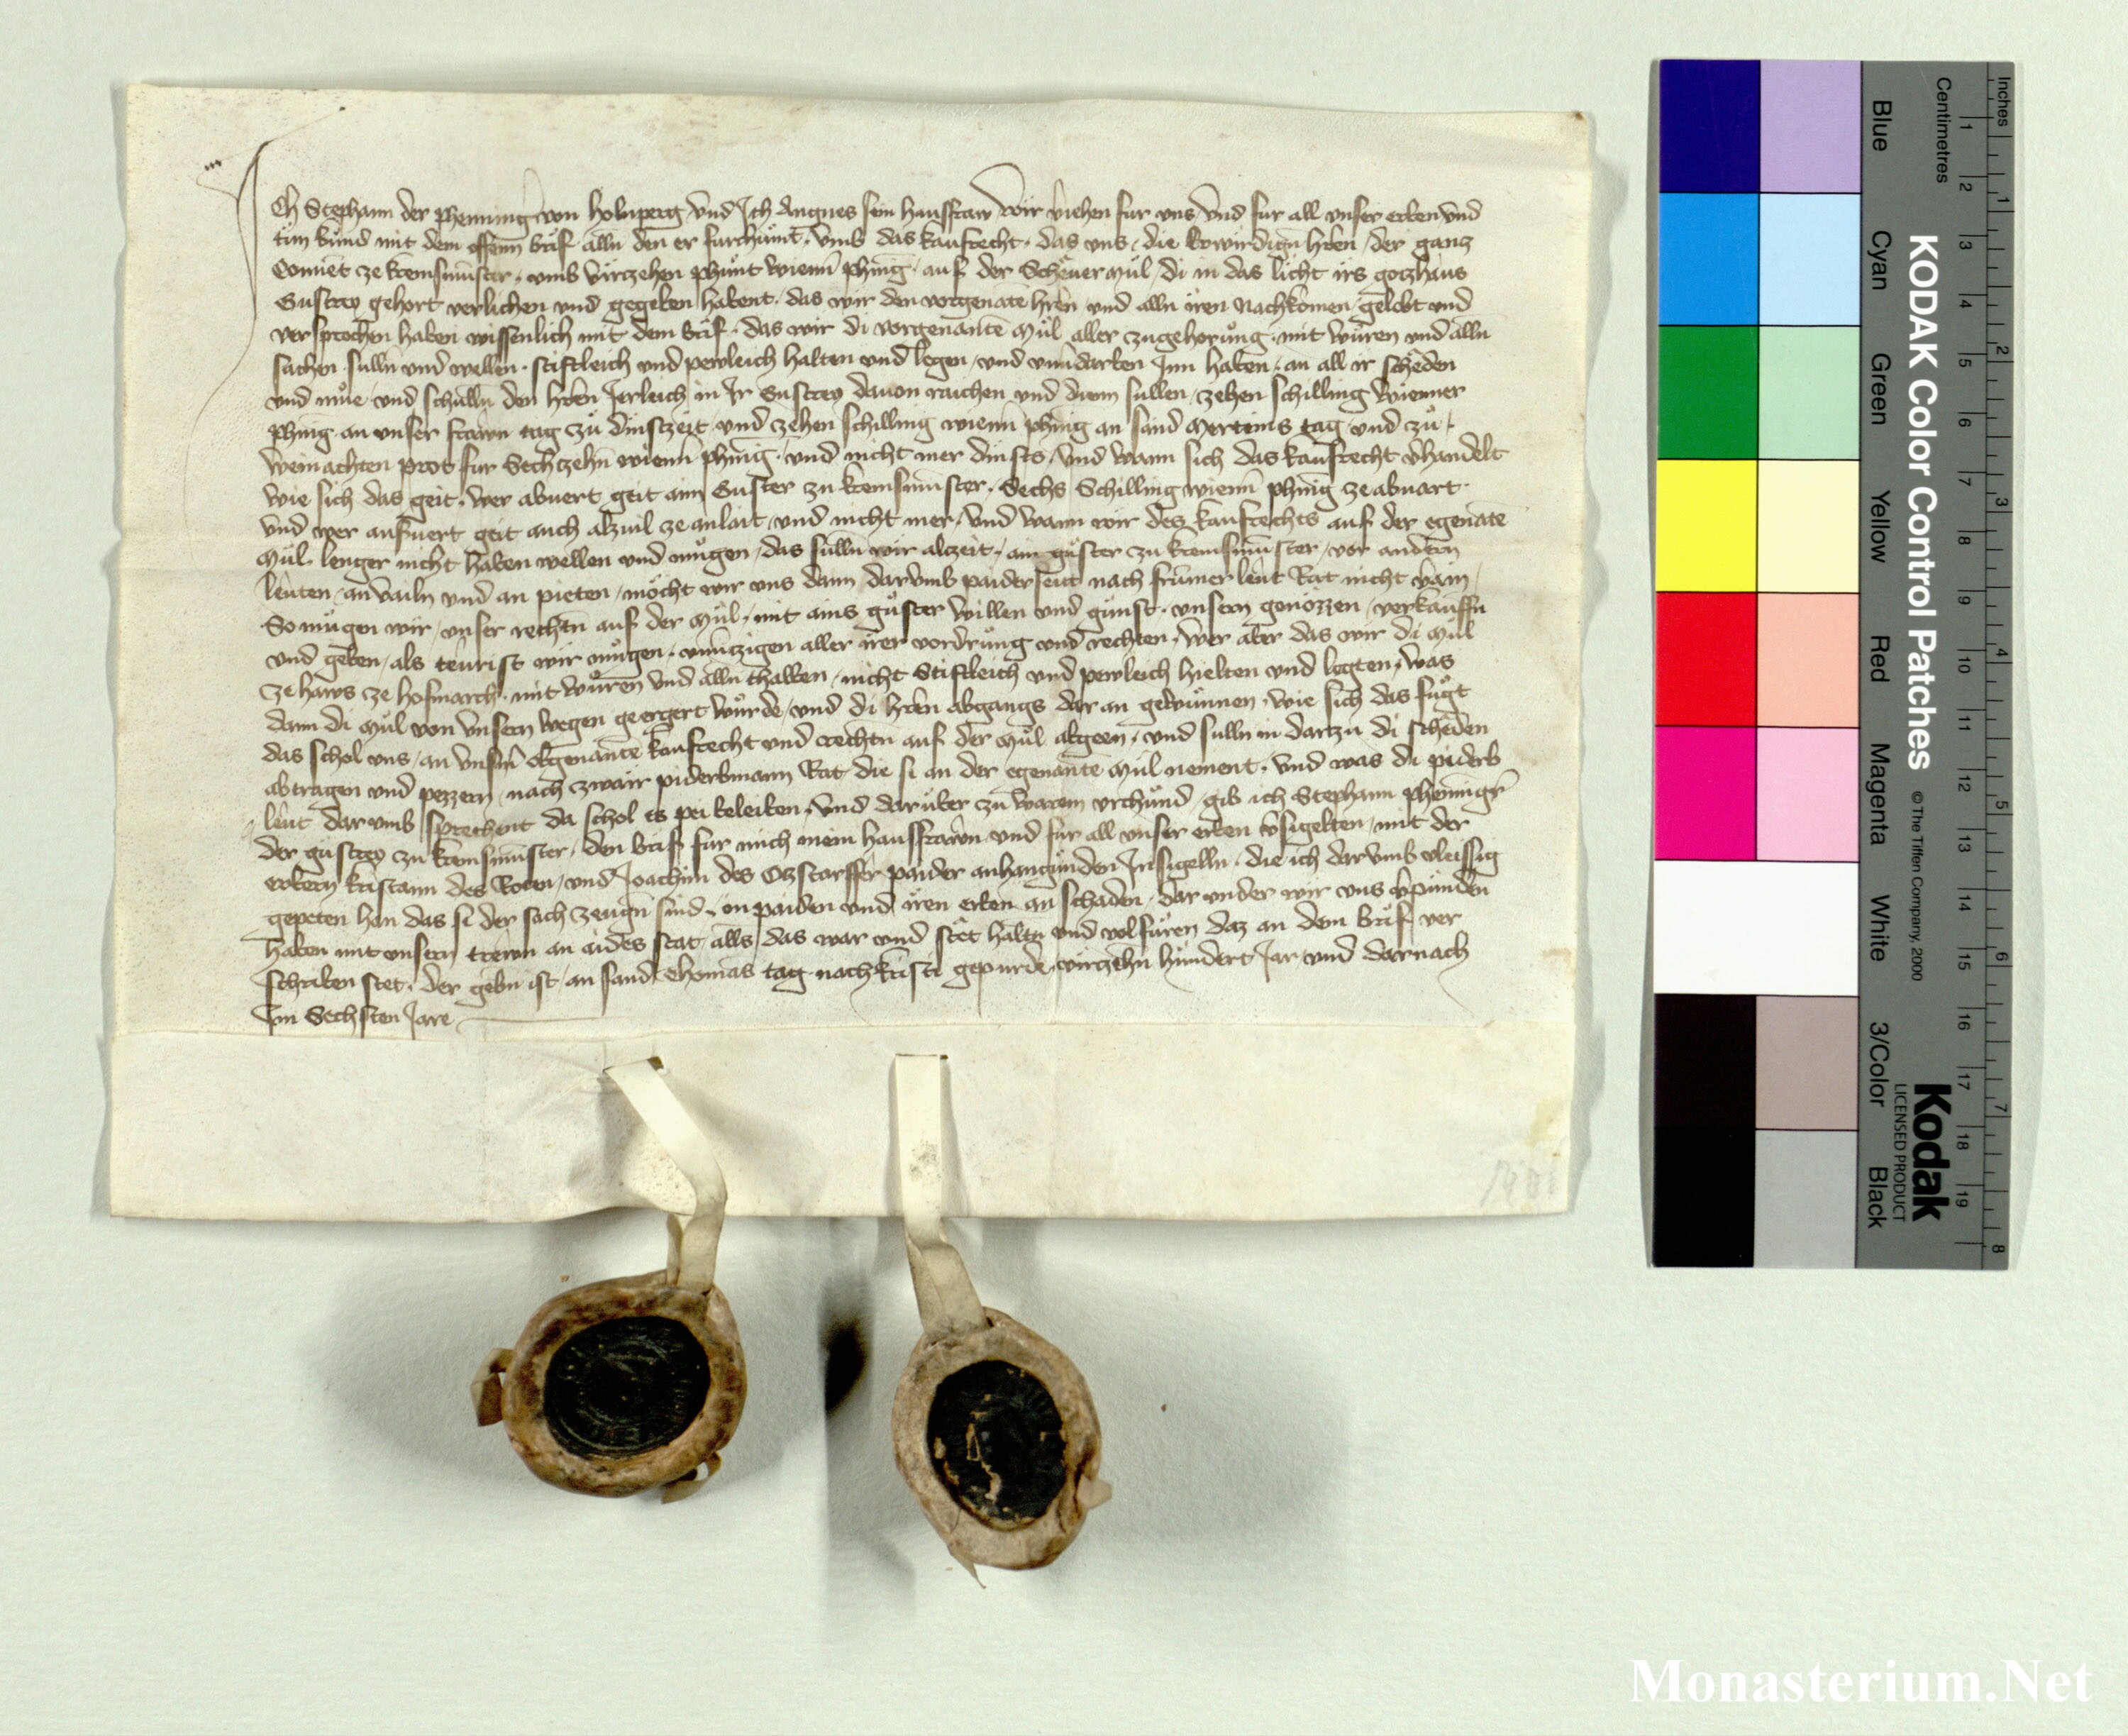 Ich Stephann der phenning von holnperg vnd Ich Angnes sein hausfraw wir viehen fur vns vnd fur all vnser erben vnd
tun kund mit dem offenn brif alln den er furchumt, vmb das kaufrecht, das vns die erwirdign hren der ganz
Conuet ze kremsmunster, vmb virzehen phunt wienn phnig, auf der Scheuer mul, di in das licht irs gozhaus
Gustrey gehort verlichen vnd gegeben habent, das wir den vorgenate hren vnd alln iren nachkomen gelobt vnd
versprochen haben wissenlich mit dem brif, das wir di vorgenante mul aller zugehorung, mit wuren vnd alln
sachen sulln vnd wellen, stiftleich vnd pewleich halten vnd legen, vnd vnuidarben Inn haben, an all ir scheden
vnd mue, vnd schulln den hren Jerleich in Ir Gustrey dauon raichen vnd dienn sullen, zehen schilling wienner
phnig an vnser frawn tag zu dinstzeit, vnd zehen schilling wienn phnig an sand Merteins tag, vnd zu
weinachten prot fur Sechzehn wienn phnig, vnd nicht mer dinsts, vnd wann sich das kaufrecht vhandelt
wie sich das geit, wer abuert geit aim Guster zu kremsmunster, Sechs Schilling wienn phnig ze abuart
vnd wer aufuert geit auch alzuil ze anlait, vnd nicht mer, vnd wann wir des kaufrechts auf der egenate
Mul lenger nicht haben wellen vnd mugen, das sulln wir alzeit, aim guster zu kremsmunster, vor andern
leuten, an vailn vnd an pieten, mocht wir vns dann darumb paiderseit nach frumer leut Rat nicht vain,
So mugen wir, vnser rechtn auf der Mul, mit ains guster willen vnd gunst, vnsern genozzen, verkauffn
vnd geben, als teurist wir mugen, vnuizigen aller irer vordrung vnd rechten, wer aber das wir di Mul
ze haws ze hofmarch, mit wuren vnd alln thalben, nicht Stiftleich vnd pewleich hielten vnd legten, was
dann di Mul von vnsern wegen geergert wurde, vnd di hren abgangs dar an gewunnen, wie sich das fugt
das schol vns, an vnsm obgenante kaufrecht vnd rechtn auf der Mul abgeen, vnd sulln in dartzu di scheden
abtragen vnd pezzern, nach zwair piderbmann Rat die si an der egenante Mul nement, vnd was di piderb
leut darumb sprechent da schol es pei beleiben, vnd daruber zu warem vrchund, gib ich Stephann phennigr
der gustrey zu kremsmunster, den brif fur mich mein hausfrawn vnd fur all vnser erben vsigelten, mit der
erbern kristann des Roten, vnd Joachim des Ozstorffer paider anhangunden Insigelln, die ich darumb vleissig
gepeten han das si der sach zeugn sind, on paiden vnd iren erben an schaden, dar vnder wir vns vpunden
haben mit vnsern trewn an aides stat, alls das war vnd stet haltn vnd volfuren daz an dem brif ver
schriben stet, der gebn ist, an sand Thomas tag nach kristi gepurde, virzehn hundert Jar, vnd darnach
Im Sechsten Jare
KODAK Color Control Patches © The Tiffen Company, 2000
Kodak
LICENSED PRODUCT
Inches 1 2 3 4 5 6 7 8
Centimetres 1 2 3 4 5 6 7 8 9 10 11 12 13 14 15 16 17 18 19
Blue Cyan Green Yellow Red Magenta White 3/Color Black
Monasterium.Net